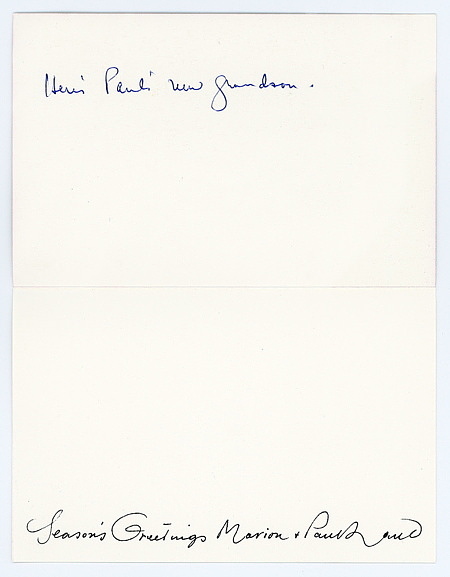 Here's Paul's new grandson.
Season's Greetings Marion + Paul Rand